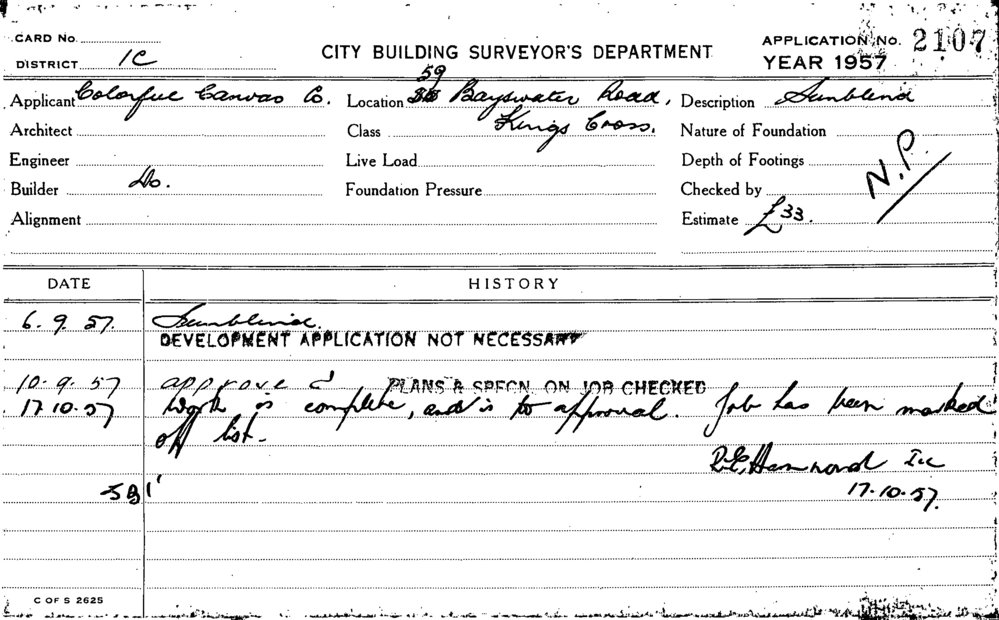 CARD No.
DISTRICT 1C
CITY BUILDING SURVEYOR'S DEPARTMENT
APPLICATION No. 2107
YEAR 1957
Applicant Colorful Canvas Co.
59
Location Bayswater Road, Kings Cross.
Description Sunblind
Architect
Class
Nature of Foundation
Engineer
Live Load
Depth of Footings
Builder Do.
Foundation Pressure
Checked by
N.P.
Alignment
Estimate £33.
DATE HISTORY
6. 9. 57. Sunblind.
DEVELOPMENT APPLICATION NOT NECESSARY
10. 9. 57 approved PLANS & SPECN. ON JOB CHECKED
17.10.57 Work is complete, and is to approval. Job has been marked
off list.
Hammond
17.10.57.
C OF S 2625